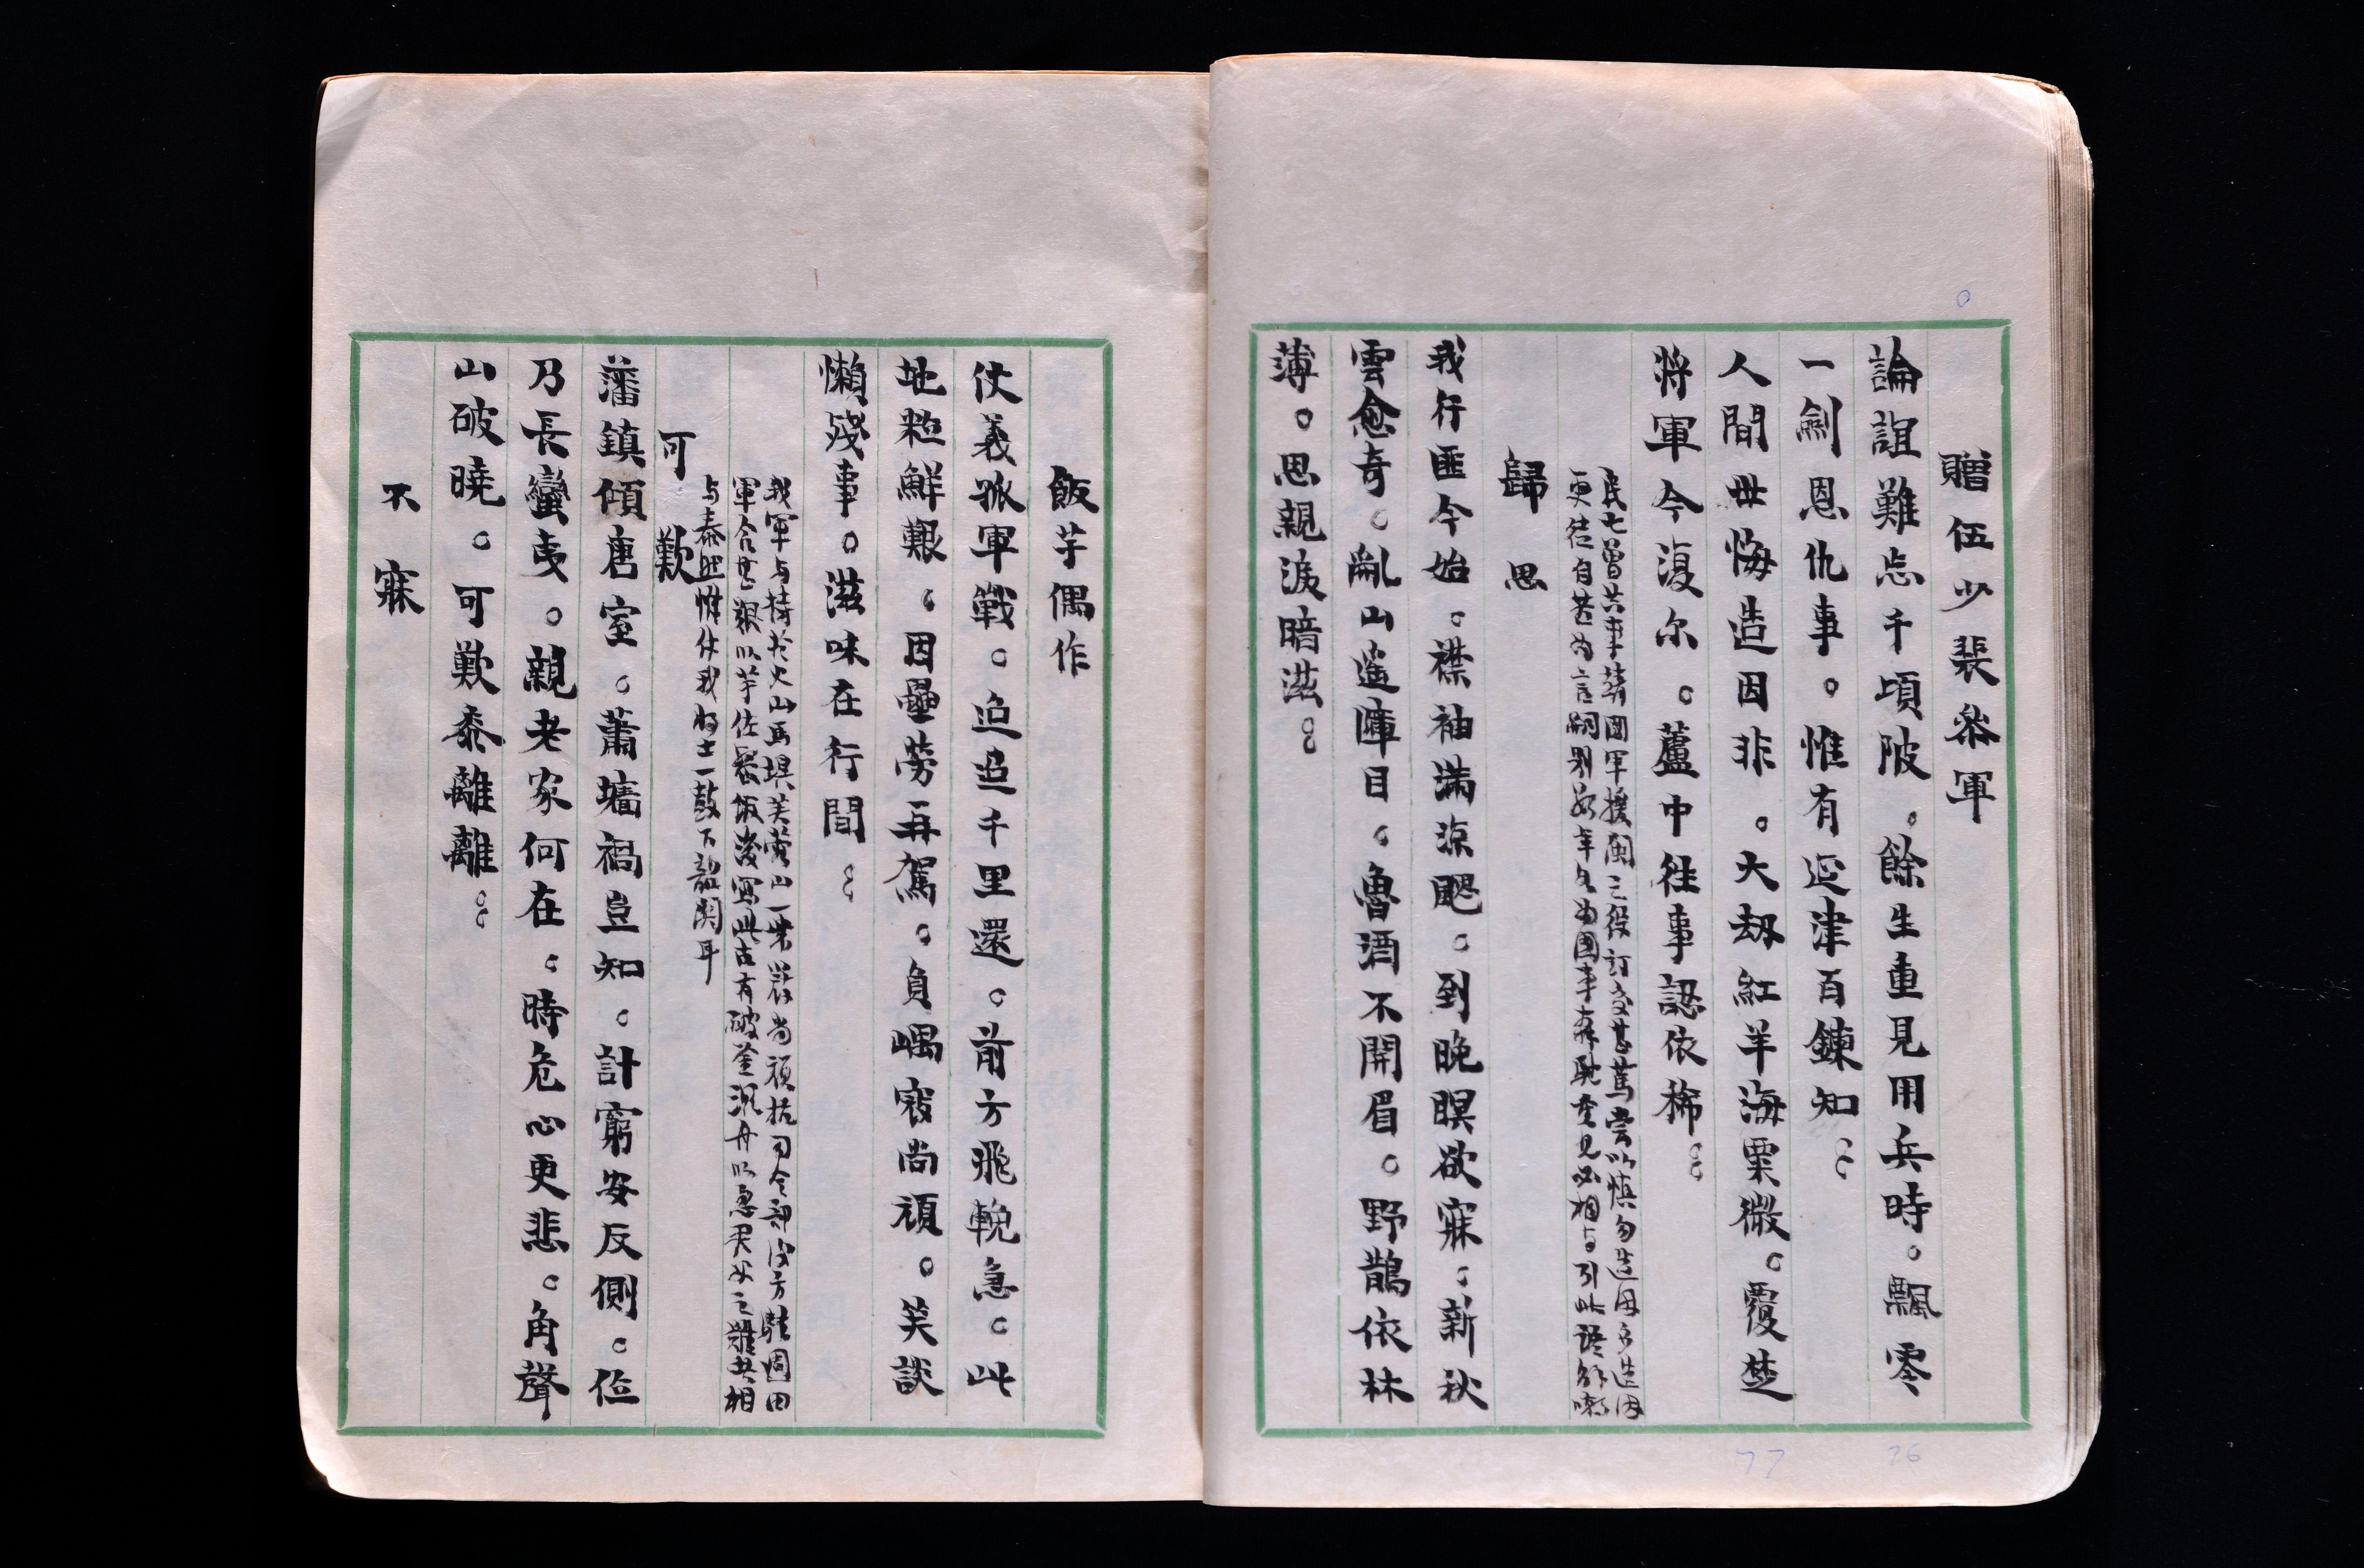 贈伍少裴叅軍
論誼難忘千頃陂。餘生重見用兵時。飄零
一劍恩仇事。惟有延津百鍊知。
人間毋悔造因非。大刼紅羊海粟微。覆楚
將軍今復尔。蘆中往事認依稀。
民七曾共事靖國軍援閩之役訂交甚篤嘗以慎勿造因勿造因
更徒自苦為言嗣別
歸思
我行匪今始。襟袖滿涼颸。到晚瞑欲寐。新秋
雲愈奇。亂山遙陣目。魯酒不開眉。野鵲依林
薄。思親淚暗滋。
飯芋偶作
仗義孤軍戰。迢迢千里還。前方飛輓急。此
地粒鮮艱。因壘勞再駕。負嵎寇尚頑。笑談
懶殘事。滋味在行間。
我軍与持於火山馬壩芙蓉山一帶嚴尚頑抗司令部後方駐周田
軍食甚艱以芋佐餐飯後寫此古有破釜沉舟以急君父之難共相
与泰然惟仗我將士一鼓下韶関耳
可歎
藩鎮傾唐室。蕭墻禍豈知。計窮安反側。位
乃長蠻夷。親老家何在。時危心更悲。角聲
山破曉。可歎黍離離。
不寐